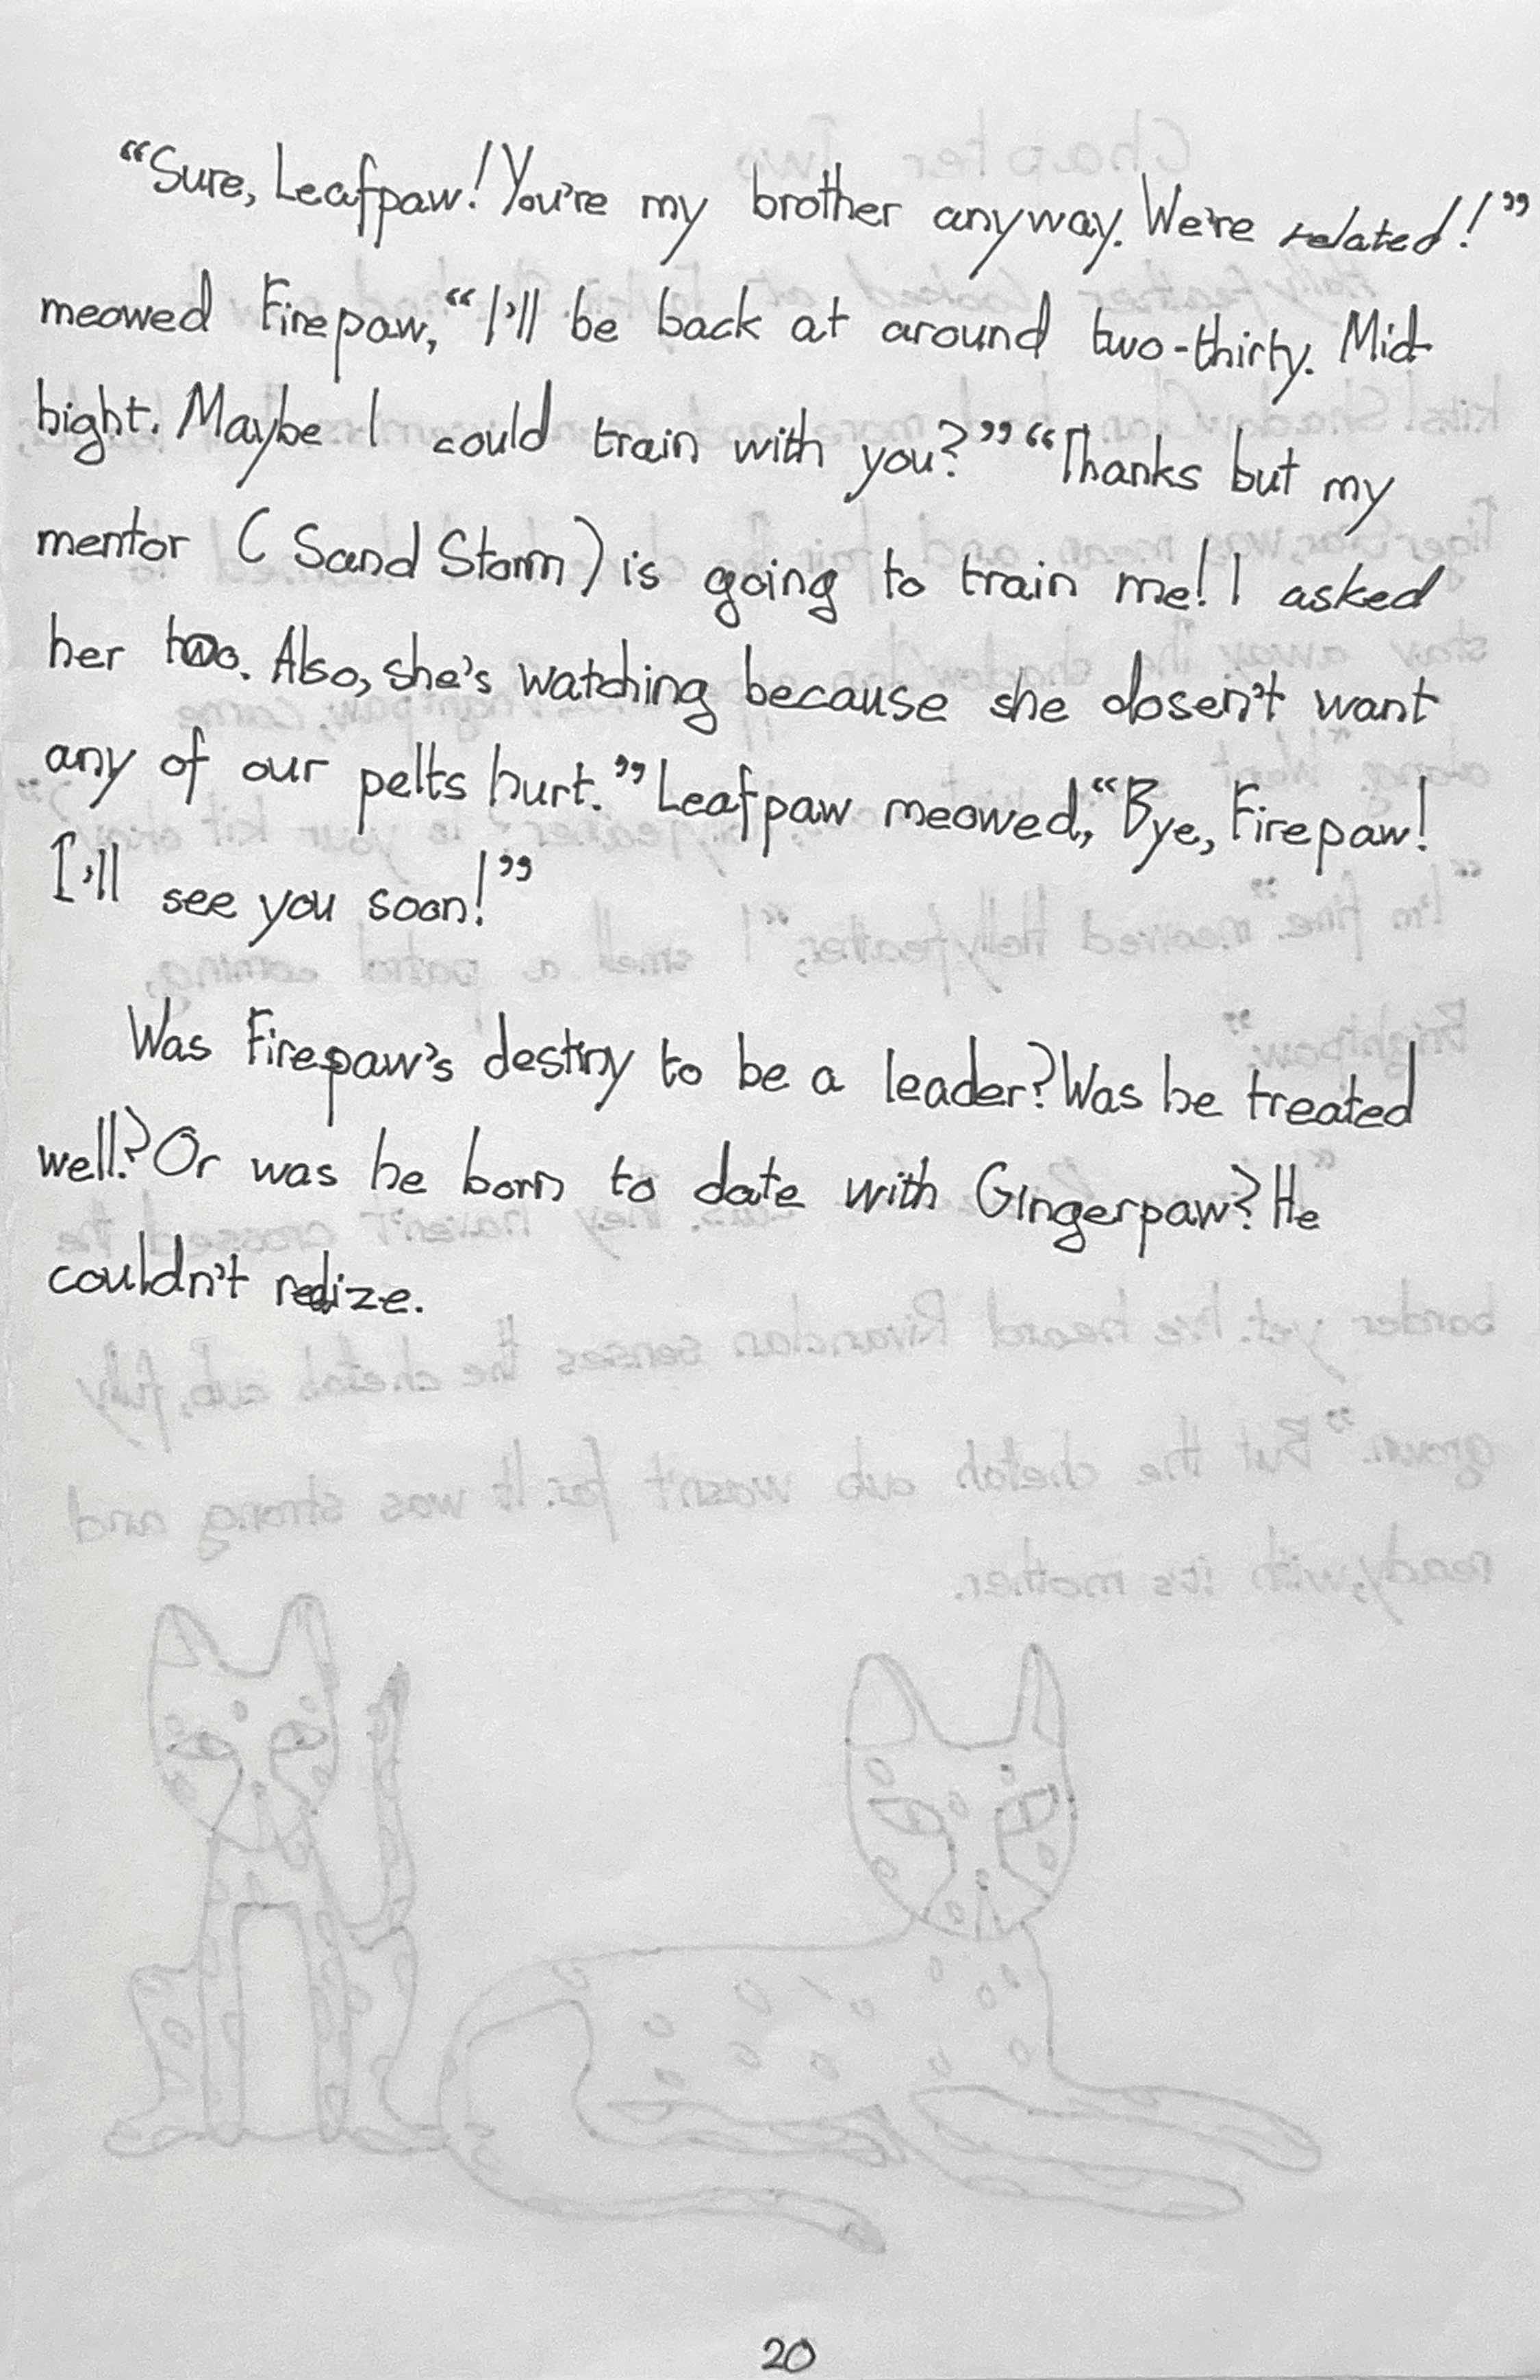 “Sure, Leafpaw! You're my brother anyway. We're related!”
meowed Firepaw, “I'll be back at around two-thirty. Mid-
hight. Maybe I could train with you?” “Thanks but my
mentor (Sand Storm) is going to train me! I asked
her too. Also, she's watching because she dosen't want
any of our pelts hurt.” Leafpaw meowed, “Bye, Firepaw!
I'll see you soon!”
Was Firepaw's destiny to be a leader? Was he treated
well? Or was he born to date with Gingerpaw? He
couldn't realize.
20